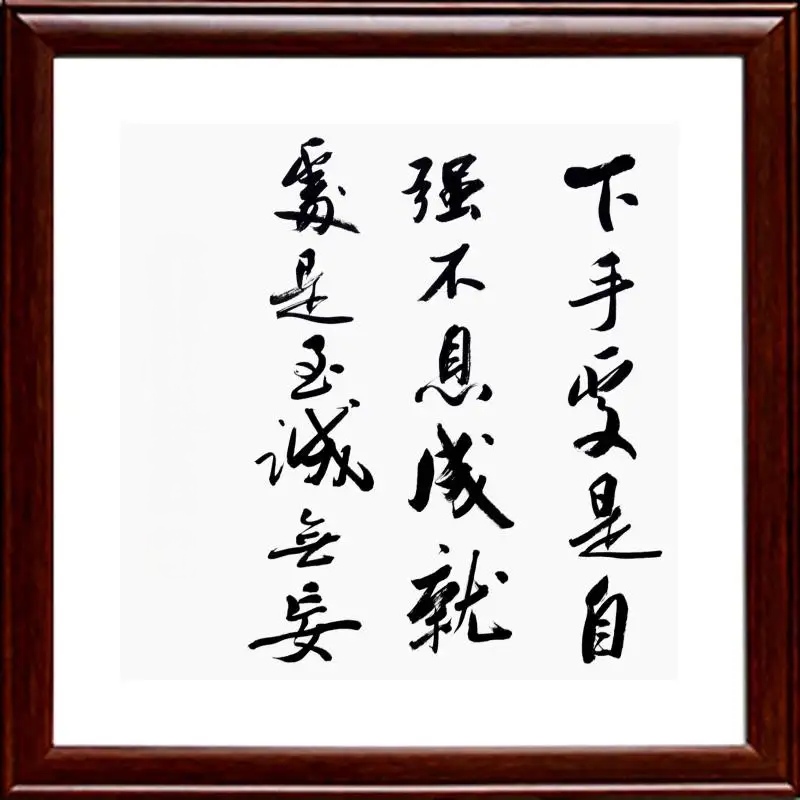 下手处是自
强不息成就
處是至诚無妄